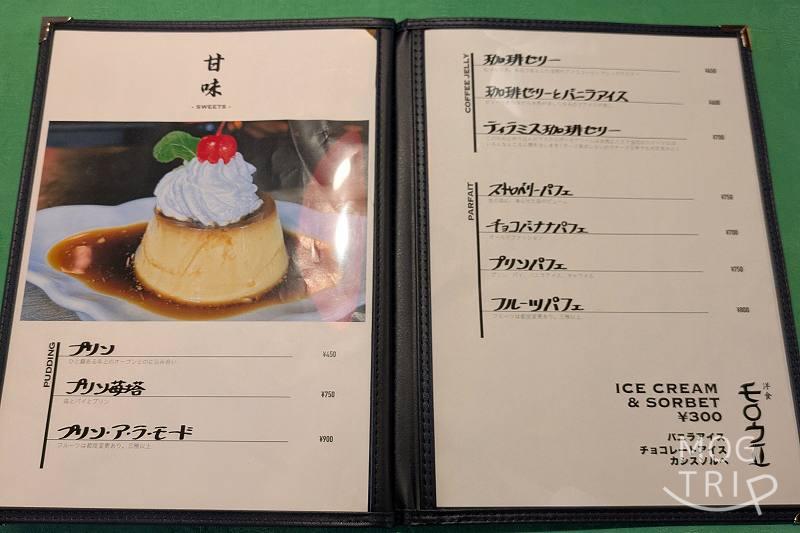 甘味
- SWEETS -
PUDDING
プリン ¥450
プリン苺塔 ¥750
苺とパイとプリン
プリン・ア・ラ・モード ¥900
フルーツは都度変更あり。三種以上
COFFEE JELLY
珈琲ゼリー ¥450
珈琲ゼリーとバニラアイス ¥600
ティラミス珈琲ゼリー ¥700
PARFAIT
ストロベリーパフェ ¥750
チョコバナナパフェ ¥700
プリンパフェ ¥750
プリン、パイ、バニラアイス、キャラメル
フルーツパフェ ¥800
フルーツは都度変更あり。三種以上
ICE CREAM
& SORBET
¥300
バニラアイス
チョコレートアイス
カシスソルベ
洋食
MOG
TRIP